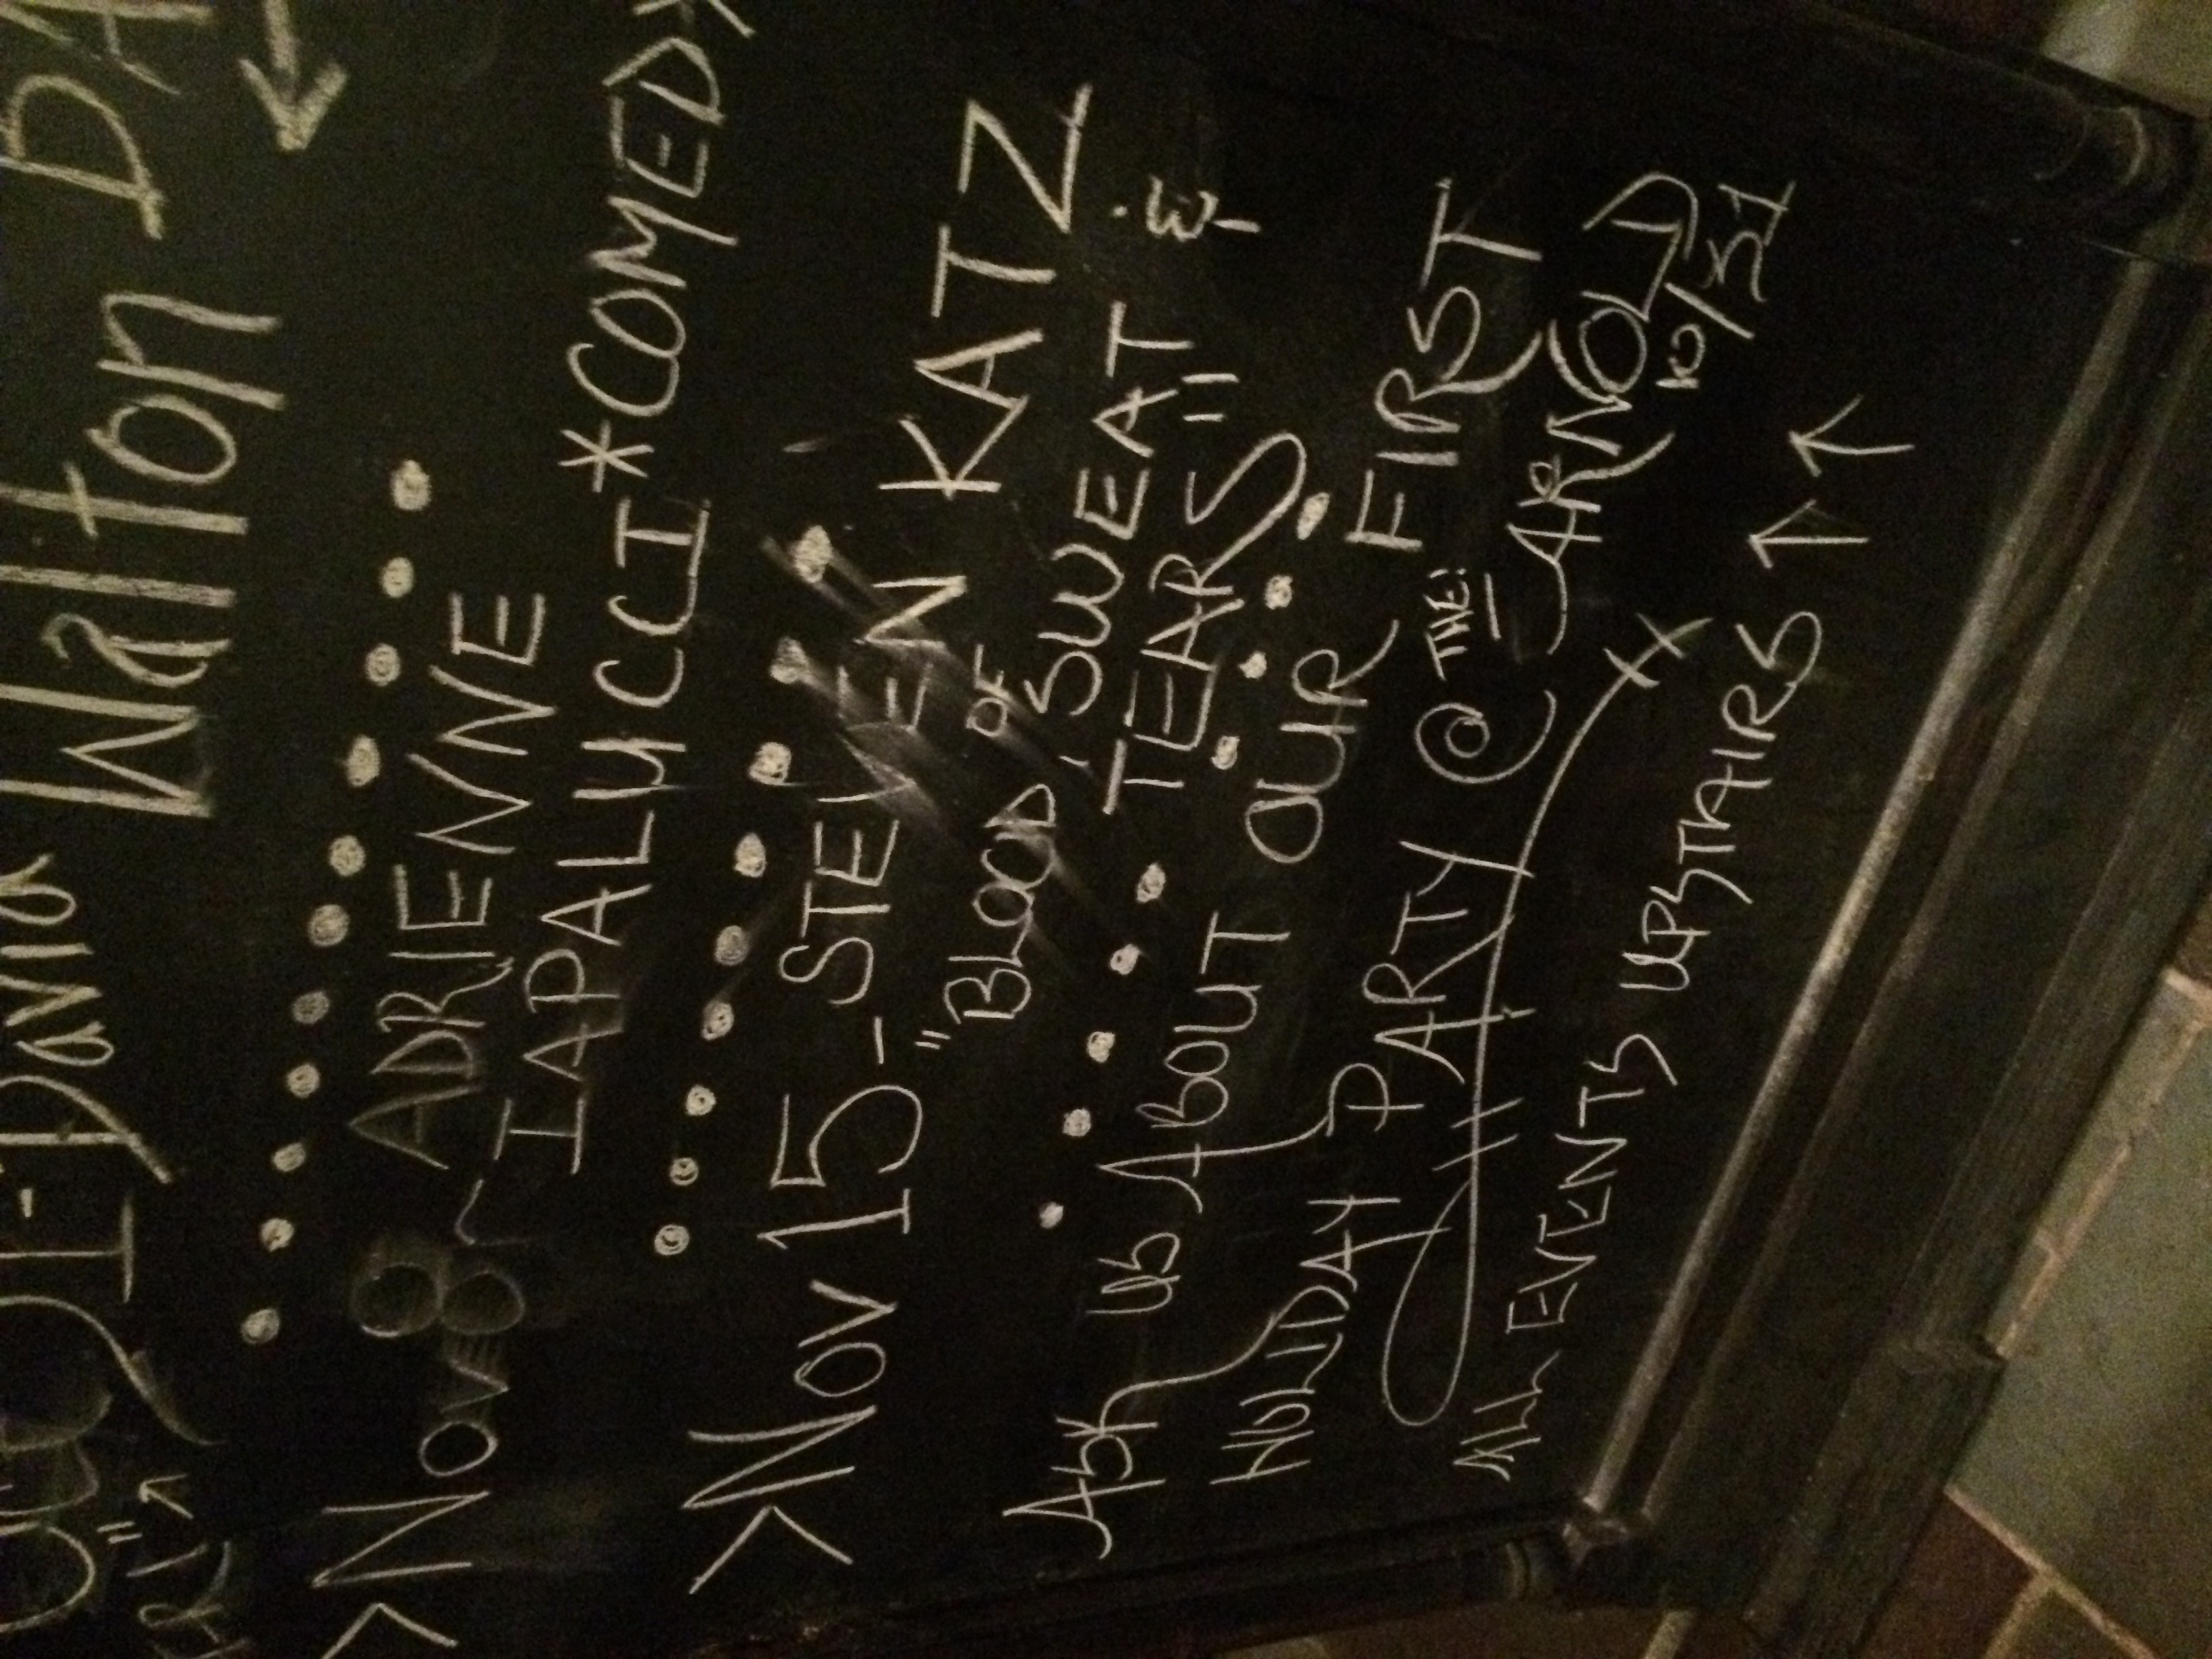 - David Walton DA
>Nov 8 - ADRIENNE
IAPALUCCI *COMEDY
>Nov 15 - STEVEN KATZ
"BLOOD, SWEAT &
OF
TEARS"
Ask us About OUR FIRST
HOLIDAY PARTY @ THE ARNOLD
10/31
ALL EVENTS UPSTAIRS ↑↑